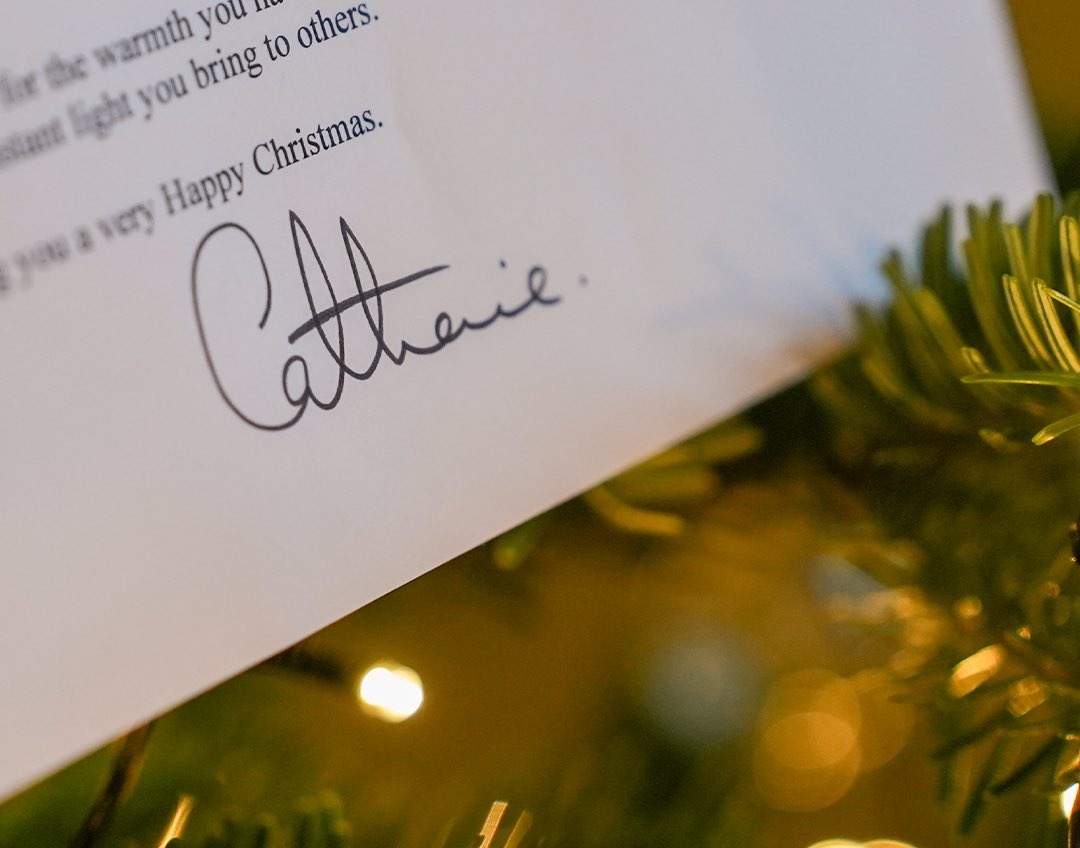 for the warmth you ha
stant light you bring to others.
g you a very Happy Christmas.
Catherine.